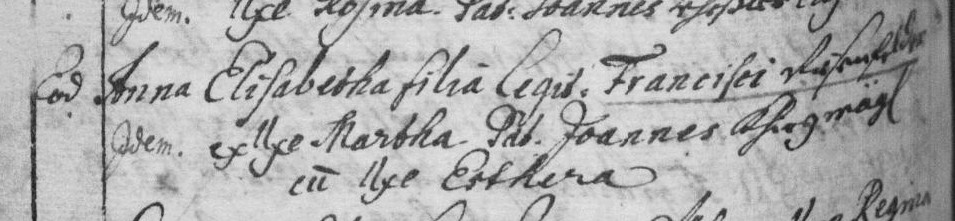 Idem. Uxe Rosina. Pat: Joannes
Eod Anna Elisabetha filia legit: Francisci
Idem. ex Uxe Martha. Pat. Joannes
cū Uxe Esthera
Regina